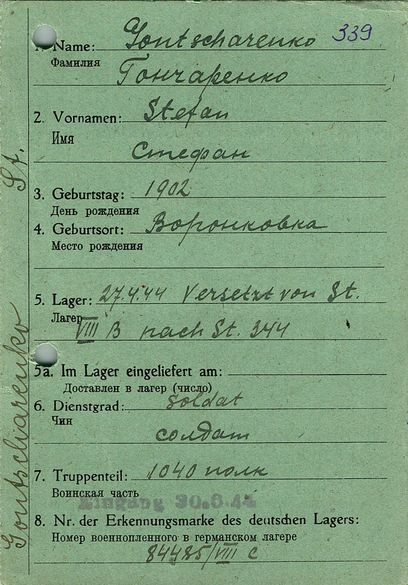 339
1. Name: Gontscharenko
Фамилия
Гончаренко
2. Vornamen: Stefan
Имя
Стефан
3. Geburtstag: 1902
День рождения
4. Geburtsort: Воронковка
Место рождения
5. Lager: 27.4.44 Versetzt von St.
Лагерь
VIII B nach St. 344
5a. Im Lager eingeliefert am:
Доставлен в лагер (число)
6. Dienstgrad: Soldat
Чин
солдат
7. Truppenteil: 1040 полк
Воинская часть
Eingang 30.6.44
8. Nr. der Erkennungsmarke des deutschen Lagers:
Номер военнопленного в германском лагере
84485/VIII C
Gontscharenko St.